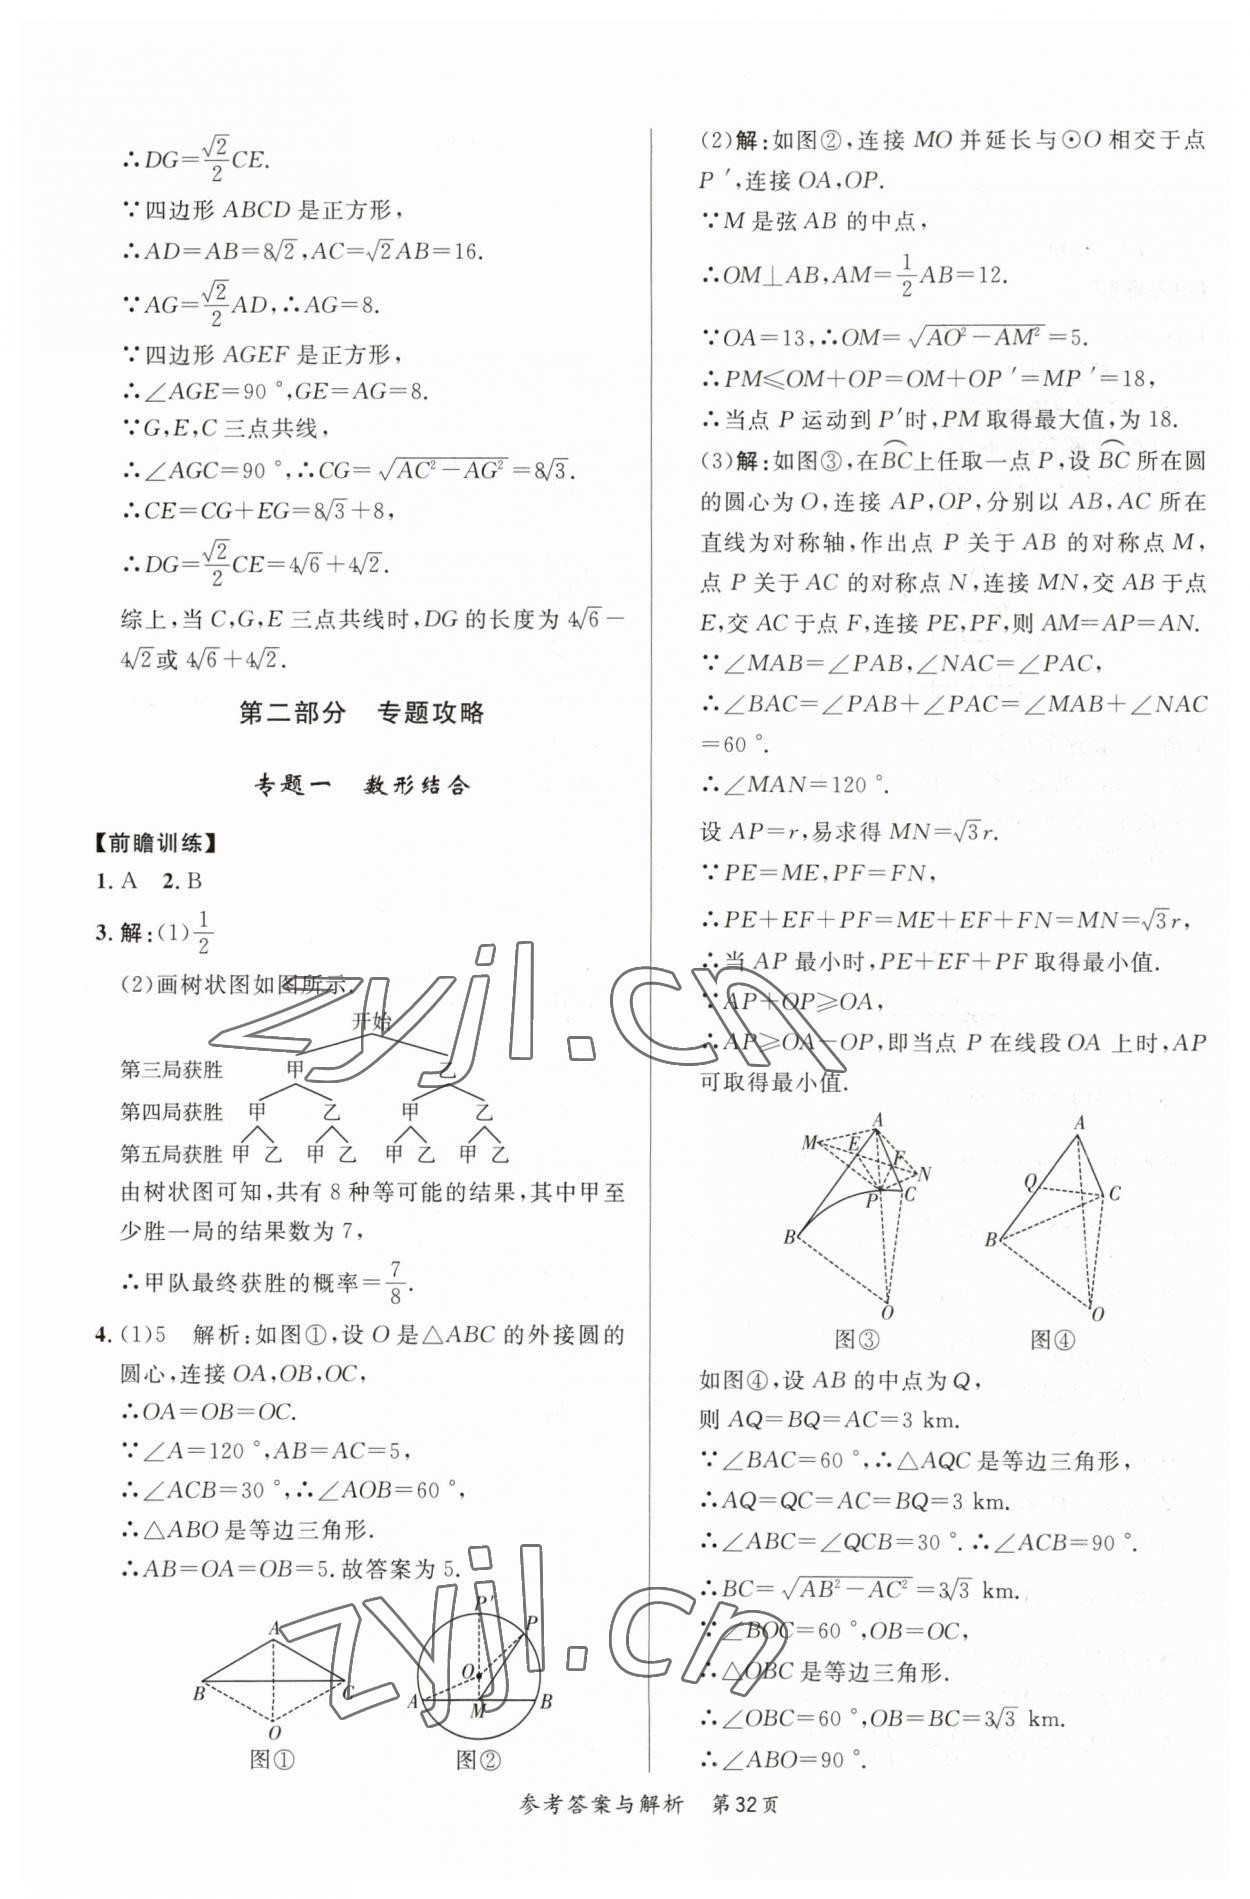 ∴DG=√2/2 CE.
∵四边形 ABCD 是正方形,
∴AD=AB=8√2,AC=√2AB=16.
∵AG=√2/2 AD,∴AG=8.
∵四边形 AGEF 是正方形,
∴∠AGE=90°,GE=AG=8.
∵G,E,C 三点共线,
∴∠AGC=90°,∴CG=√(AC²-AG²)=8√3.
∴CE=CG+EG=8√3+8,
∴DG=√2/2 CE=4√6+4√2.
综上,当 C,G,E 三点共线时,DG 的长度为 4√6-
4√2或 4√6+4√2.
第二部分 专题攻略
专题一 数形结合
【前瞻训练】
1. A 2. B
3. 解:(1)1/2
(2)画树状图如图所示.
开始
第三局获胜 甲 乙
第四局获胜 甲 乙 甲 乙
第五局获胜 甲 乙 甲 乙 甲 乙 甲 乙
由树状图可知,共有 8 种等可能的结果,其中甲至
少胜一局的结果数为 7,
∴甲队最终获胜的概率=7/8.
4. (1)5 解析:如图①,设 O 是△ABC 的外接圆的
圆心,连接 OA,OB,OC,
∴OA=OB=OC.
∵∠A=120°,AB=AC=5,
∴∠ACB=30°,∴∠AOB=60°,
∴△ABO 是等边三角形.
∴AB=OA=OB=5.故答案为 5.
A
B
C
O
图①
P′
P
O
A
M
B
图②
(2)解:如图②,连接 MO 并延长与⊙O 相交于点
P′,连接 OA,OP.
∵M 是弦 AB 的中点,
∴OM⊥AB,AM=1/2 AB=12.
∵OA=13,∴OM=√(AO²-AM²)=5.
∴PM≤OM+OP=OM+OP′=MP′=18,
∴当点 P 运动到 P′时,PM 取得最大值,为 18.
(3)解:如图③,在⌒BC上任取一点 P,设 ⌒BC 所在圆
的圆心为 O,连接 AP,OP,分别以 AB,AC 所在
直线为对称轴,作出点 P 关于 AB 的对称点 M,
点 P 关于 AC 的对称点 N,连接 MN,交 AB 于点
E,交 AC 于点 F,连接 PE,PF,则 AM=AP=AN.
∵∠MAB=∠PAB,∠NAC=∠PAC,
∴∠BAC=∠PAB+∠PAC=∠MAB+∠NAC
=60°.
∴∠MAN=120°.
设 AP=r,易求得 MN=√3r.
∵PE=ME,PF=FN,
∴PE+EF+PF=ME+EF+FN=MN=√3r,
∴当 AP 最小时,PE+EF+PF 取得最小值.
∵AP+OP≥OA,
∴AP≥OA-OP,即当点 P 在线段 OA 上时,AP
可取得最小值.
A
M
E
F
N
P
C
B
O
图③
A
Q
C
B
O
图④
如图④,设 AB 的中点为 Q,
则 AQ=BQ=AC=3 km.
∵∠BAC=60°,∴△AQC 是等边三角形,
∴AQ=QC=AC=BQ=3 km.
∴∠ABC=∠QCB=30°.∴∠ACB=90°.
∴BC=√(AB²-AC²)=3√3 km.
∵∠BOC=60°,OB=OC,
∴△OBC 是等边三角形.
∴∠OBC=60°,OB=BC=3√3 km.
∴∠ABO=90°.
参考答案与解析 第32页
zyjl.cn
zyjl.cn